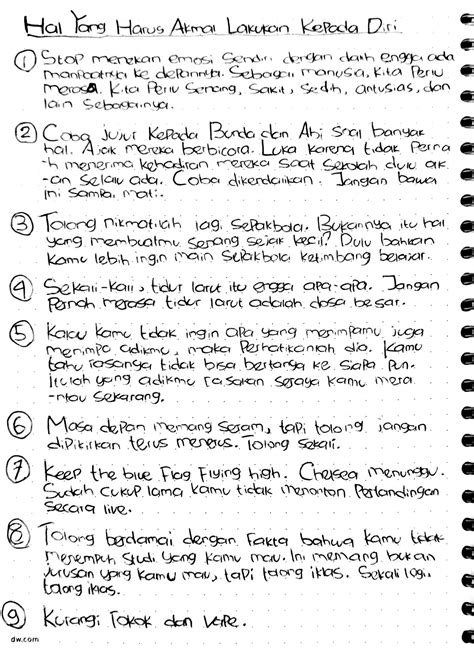 Hal Yang Harus Akmal Lakukan Kepada Diri
① Stop menekan emosi sendiri dengan dalih engga ada
manfaatnya ke depannya. Sebagai manusia, kita perlu
merasa. Kita perlu senang, sakit, sedih, antusias, dan
lain sebagainya.
② Coba jujur kepada Bunda dan Abi soal banyak
hal. Ajak mereka berbicara. Luka karena tidak perna
-h menerima kehadiran mereka saat sekolah dulu ak
-an selalu ada. Coba dikendalikan. Jangan bawa
ini sampai mati.
③ Tolong nikmatilah lagi sepakbola. Bukannya itu hal
yang membuatmu senang sejak kecil? Dulu bahkan
kamu lebih ingin main sepakbola ketimbang belajar.
④ Sekali-kali, tidur larut itu engga apa-apa. Jangan
pernah merasa tidur larut adalah dosa besar.
⑤ Kalau kamu tidak ingin apa yang menimpamu juga
menimpa adikmu, maka perhatikanlah dia. Kamu
tahu rasanya tidak bisa bertanya ke siapa pun.
Itulah yang adikmu rasakan seraya kamu mera
-ntau sekarang.
⑥ Masa depan memang seram, tapi tolong jangan
dipikirkan terus menerus. Tolong sekali.
⑦ Keep the blue flag flying high. Chelsea menunggu.
Sudah cukup lama kamu tidak menonton pertandingan
secara live.
⑧ Tolong berdamai dengan fakta bahwa kamu tidak
menempuh studi yang kamu mau. Ini memang bukan
jurusan yang kamu mau, tapi tolong iklas. Sekali lagi,
tolong iklas.
⑨ Kurangi rokok dan vape.
dw.com